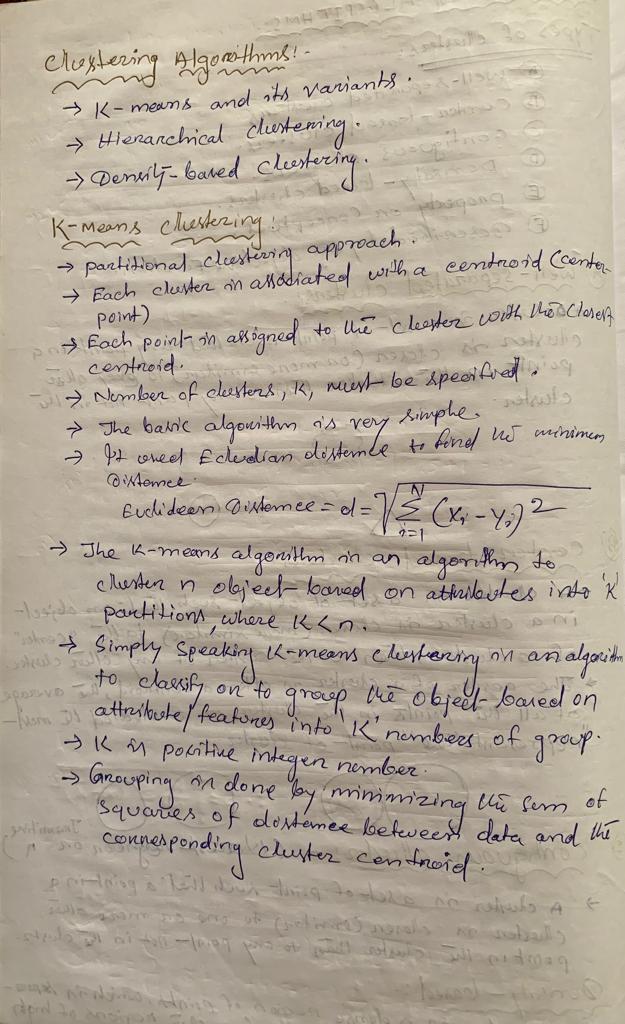 Clustering Algorithms:-
→ K-means and its variants.
→ Hierarchical clustering.
→ Density-based clustering.
K-Means clustering:
→ partitional clustering approach.
→ Each cluster is associated with a centroid (center
point)
→ Each point is assigned to the cluster with the closest
centroid.
→ Number of clusters, K, must be specified.
→ The basic algorithm is very simple.
→ It used Ecludian distance to find the minimum
Distance.
Euclidean Distance = d = √ N Σ i=1 (Xi - Yi)2
→ The K-means algorithm is an algorithm to
cluster n object based on attributes into 'K'
partitions, where K<n.
→ Simply speaking K-means clustering is an algorithm
to classify or to group the object based on
attribute/features into 'K' numbers of group.
→ K is positive integer number.
→ Grouping is done by minimizing the sum of
squares of distance between data and the
corresponding cluster centroid.